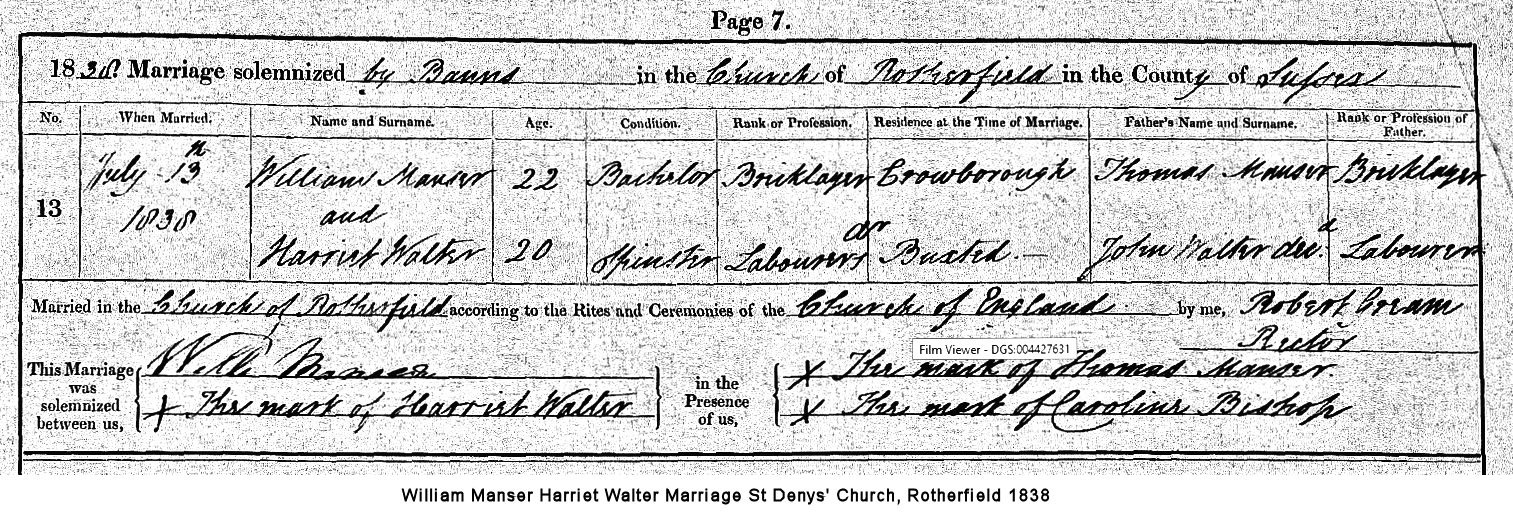 Page 7.
1838. Marriage solemnized by Banns in the Church of Rotherfield in the County of Sussex
No. When Married. Name and Surname. Age. Condition. Rank or Profession. Residence at the Time of Marriage. Father's Name and Surname. Rank or Profession of Father.
13 July 13th 1838 William Manser 22 Bachelor Bricklayer Crowborough Thomas Manser Bricklayer
and
Harriet Walter 20 Spinster Labourers dr Buxted.— John Walter decd Labourer
Married in the Church of Rotherfield according to the Rites and Ceremonies of the Church of England by me, Robert Cream
Rector
Film Viewer - DGS:004427631
This Marriage was solemnized between us,
Willm Manser
X The mark of Harriet Walter
in the Presence of us,
X The mark of Thomas Manser.
X The mark of Caroline Bishop
William Manser Harriet Walter Marriage St Denys' Church, Rotherfield 1838